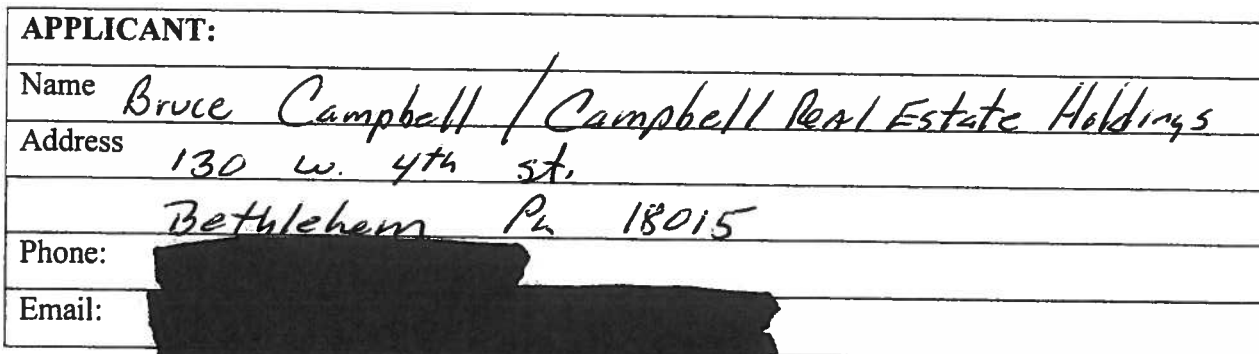 APPLICANT:
Name Bruce Campbell / Campbell Real Estate Holdings
Address 130 w. 4th st.
Bethlehem Pa 18015
Phone:
Email: